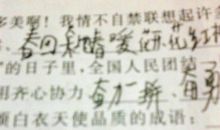 多美啊！我情不自禁联想起许多
春回 晴暖 花红
”的日子里，全国人民团结
用齐心协力 奋力一拼 奋勇
颂白衣天使品质的成语：